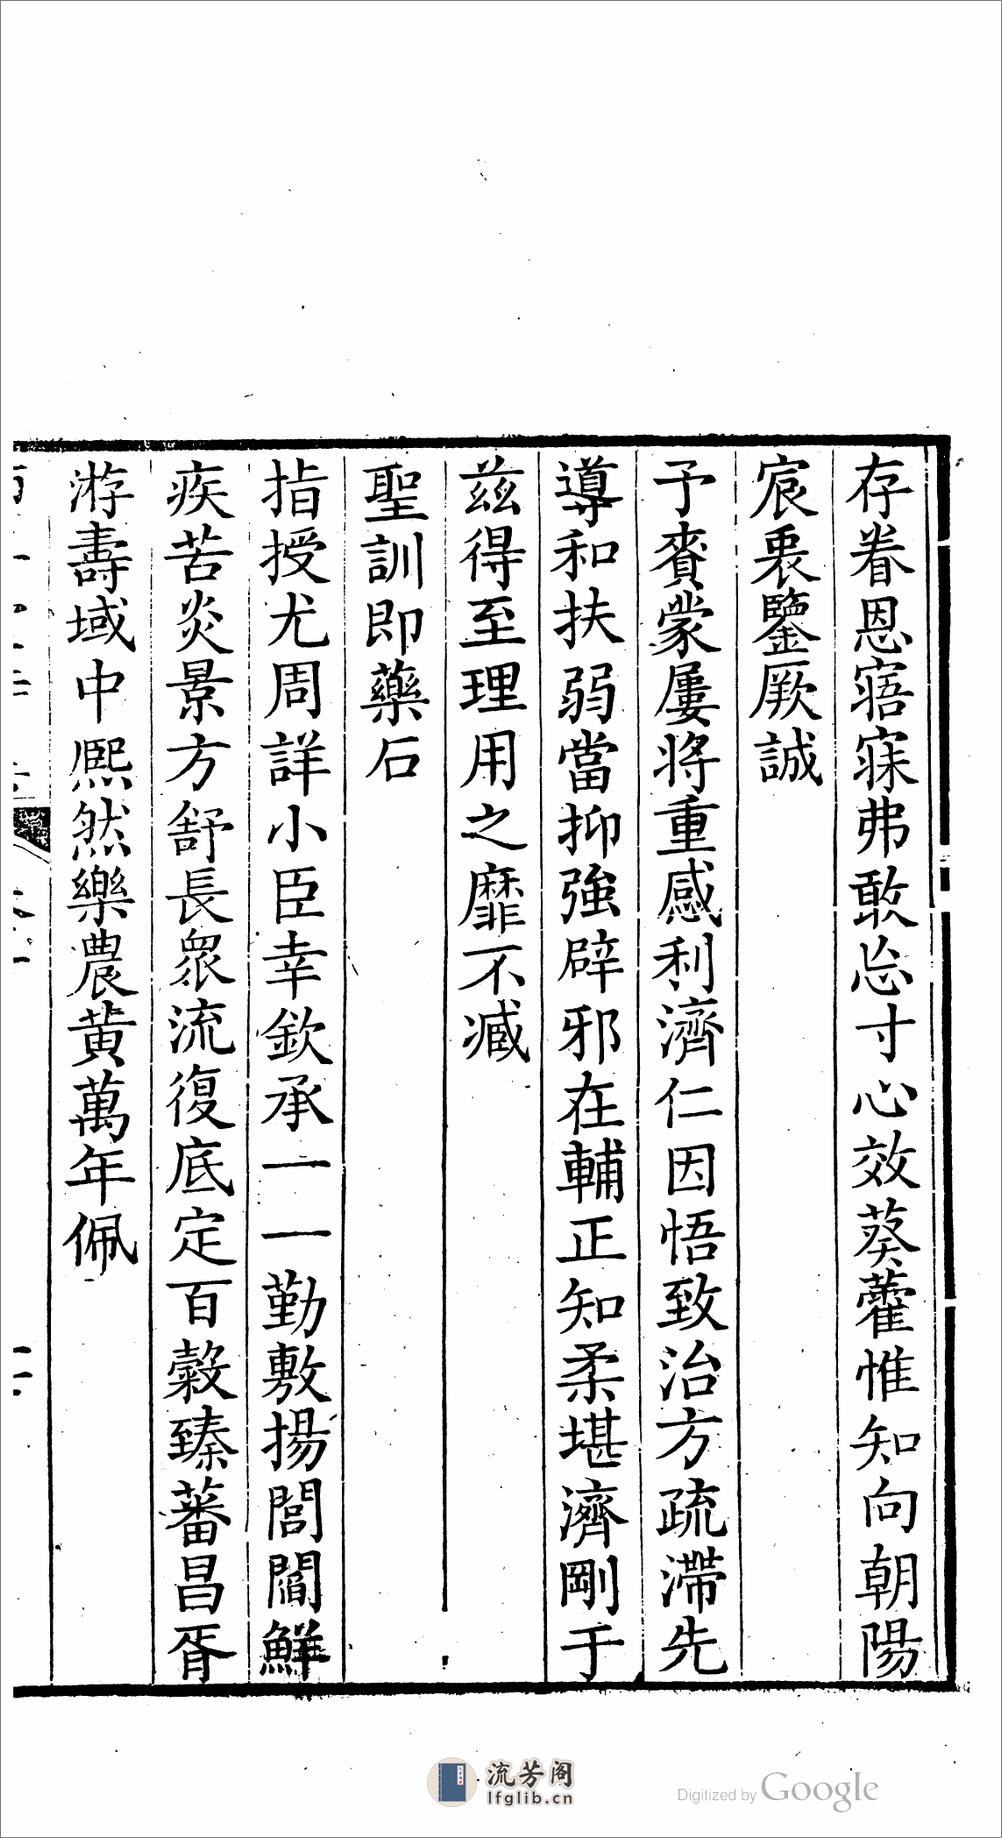 存眷恩寤寐弗敢忘寸心效葵藿惟知向朝陽
宸衷鑒厥誠
予賚蒙屢將重感利濟仁因悟致治方疏滯先
導和扶弱當抑強辟邪在輔正知柔堪濟剛于
茲得至理用之靡不臧
聖訓即藥石
指授尤周詳小臣幸欽承一一勤敷揚閭閻鮮
疾苦炎景方舒長衆流復底定百穀臻蕃昌胥
游壽域中熙然樂農黃萬年佩
流芳阁
lfglib.cn
Digitized by Google